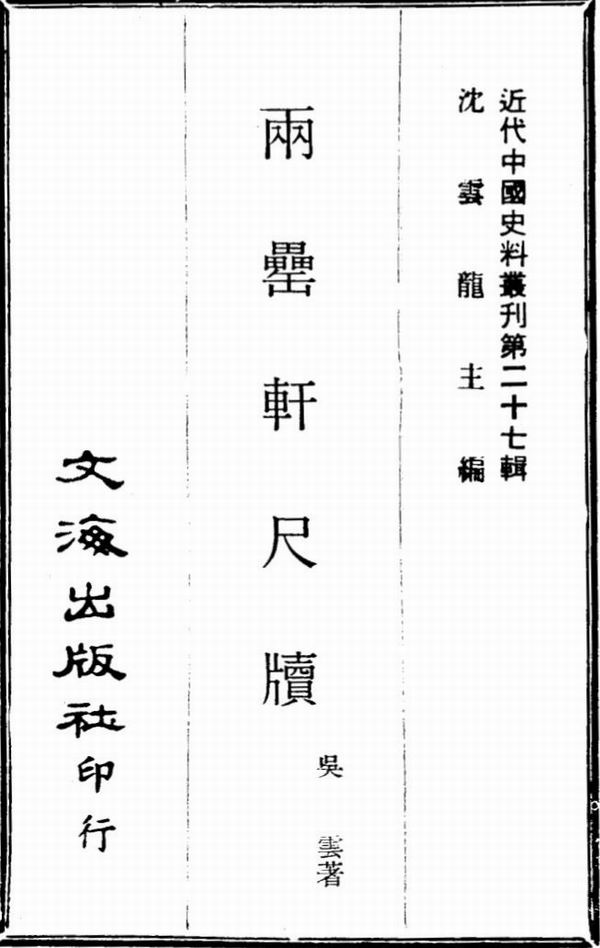 近代中國史料叢刊第二十七輯
沈雲龍主編
兩罍軒尺牘
吳雲著
文海出版社印行